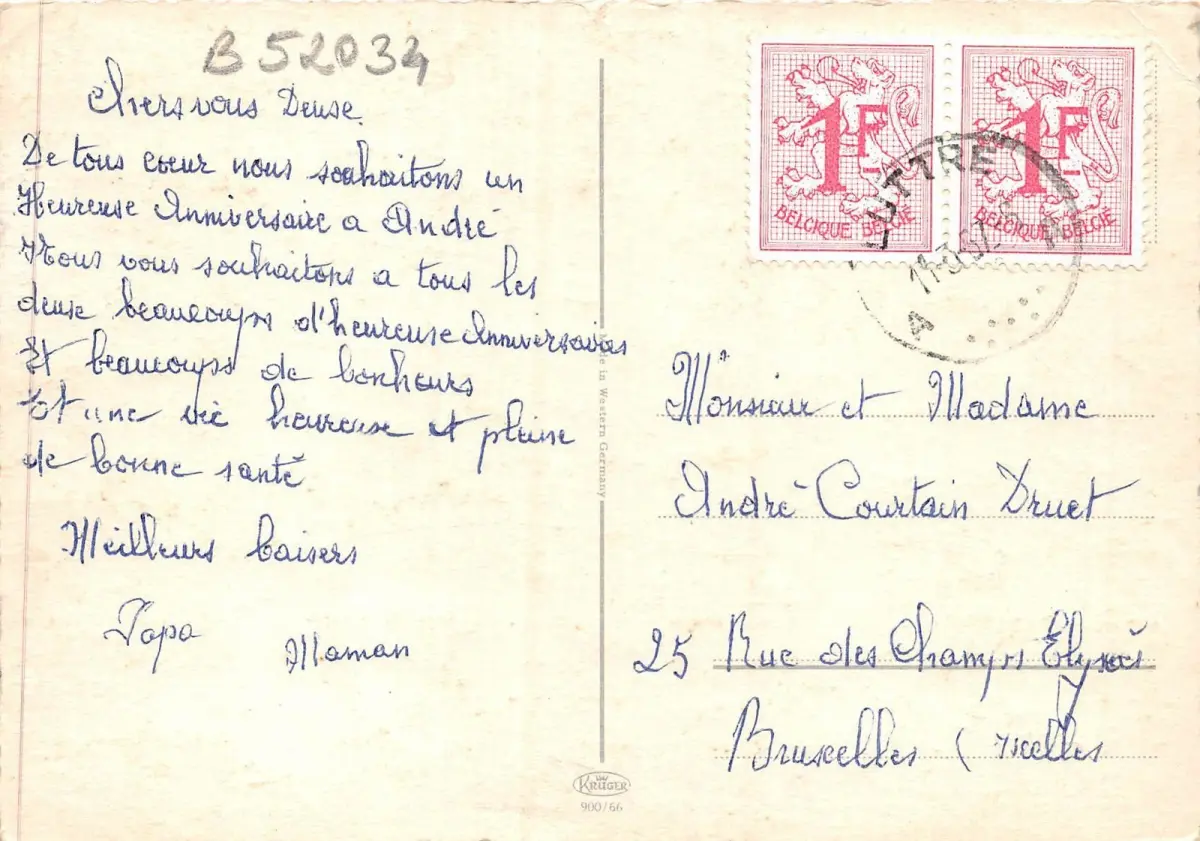 B 52034
Chers vous Deuse.
De tous coeur nous souhaitons un
Heureuse Anniversaire a André
Nous vous souhaitons a tous les
deuse beaucoups d'heureuse Anniversaires
Et beaucoups de bonheurs
Et une vie heureuse et pleine
de bonne santé
Meilleurs baisers
Papa
Maman
Made in Western Germany
KRÜGER
900/66
1F
BELGIQUE BELGIË
1F
BELGIQUE BELGIË
LUTTRE
A
Monsieur et Madame
André Courtain Druet
25 Rue des Champs Elysées
Bruxelles ( Ixelles